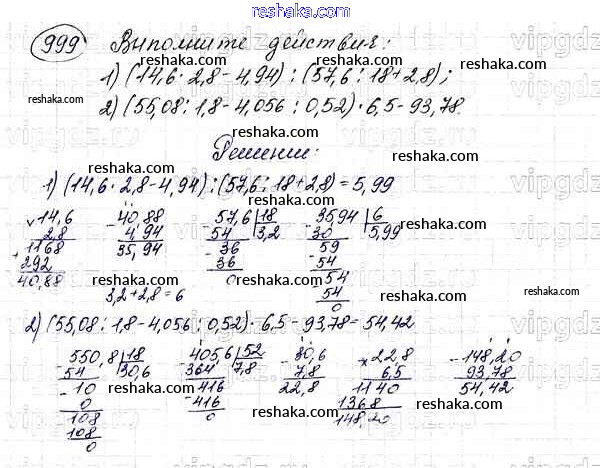 www.reshaka.com
999 Выполните действия:
1) (14,6 · 2,8 - 4,94) : (57,6 : 18 + 2,8);
2) (55,08 : 1,8 - 4,056 : 0,52) · 6,5 - 93,78
Решение:
1) (14,6 · 2,8 - 4,94) : (57,6 : 18 + 2,8) = 5,99
14,6 - 40,88 - 57,6 | 18 - 3594 | 6
2,8 4,94 54 3,2 30 5,99
+ 1168 35,94 - 36 59
292 36 - 54
40,88 0 54
3,2 + 2,8 = 6 54
0
2) (55,08 : 1,8 - 4,056 : 0,52) · 6,5 - 93,78 = 54,42
- 550,8 | 18 - 405,6 | 52 - 30,6 × 22,8 - 148,20
54 30,6 364 7,8 7,8 6,5 93,78
- 10 - 416 22,8 1140 54,42
0 416 1368
108 0 148,20
108
0
reshaka.com
vipgdz